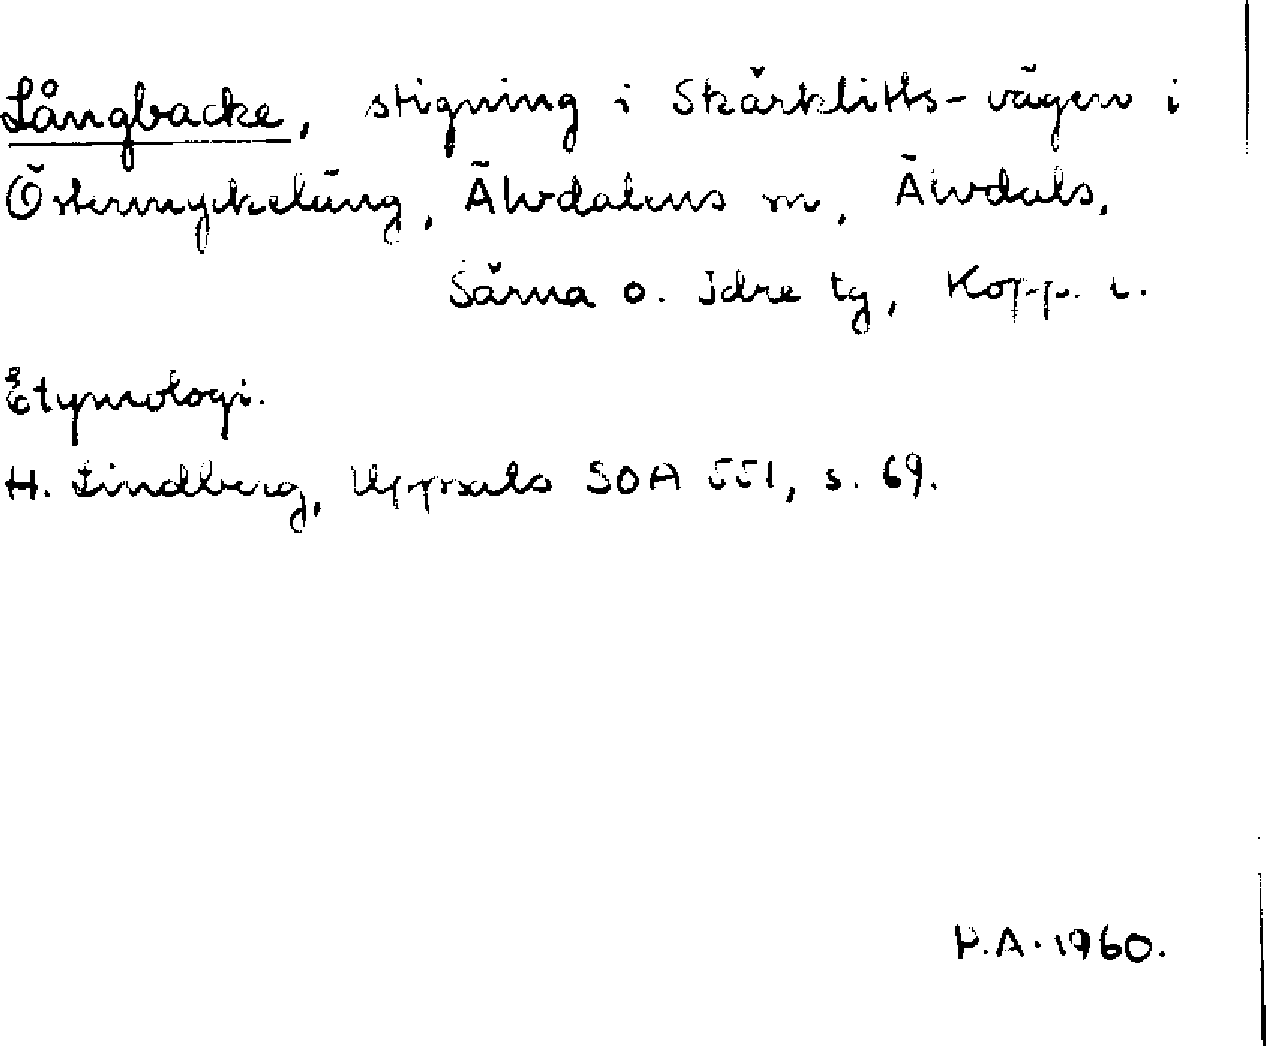 Långbacke, stigning i Skärklitts-vägen i
Östermyckeläng, Älvdalens sn, Älvdals,
Särna o. Idre tg, Kopp. l.
Etymologi.
H. Lindberg, Uppsala SOA 551, s. 69.
P.A. 1960.